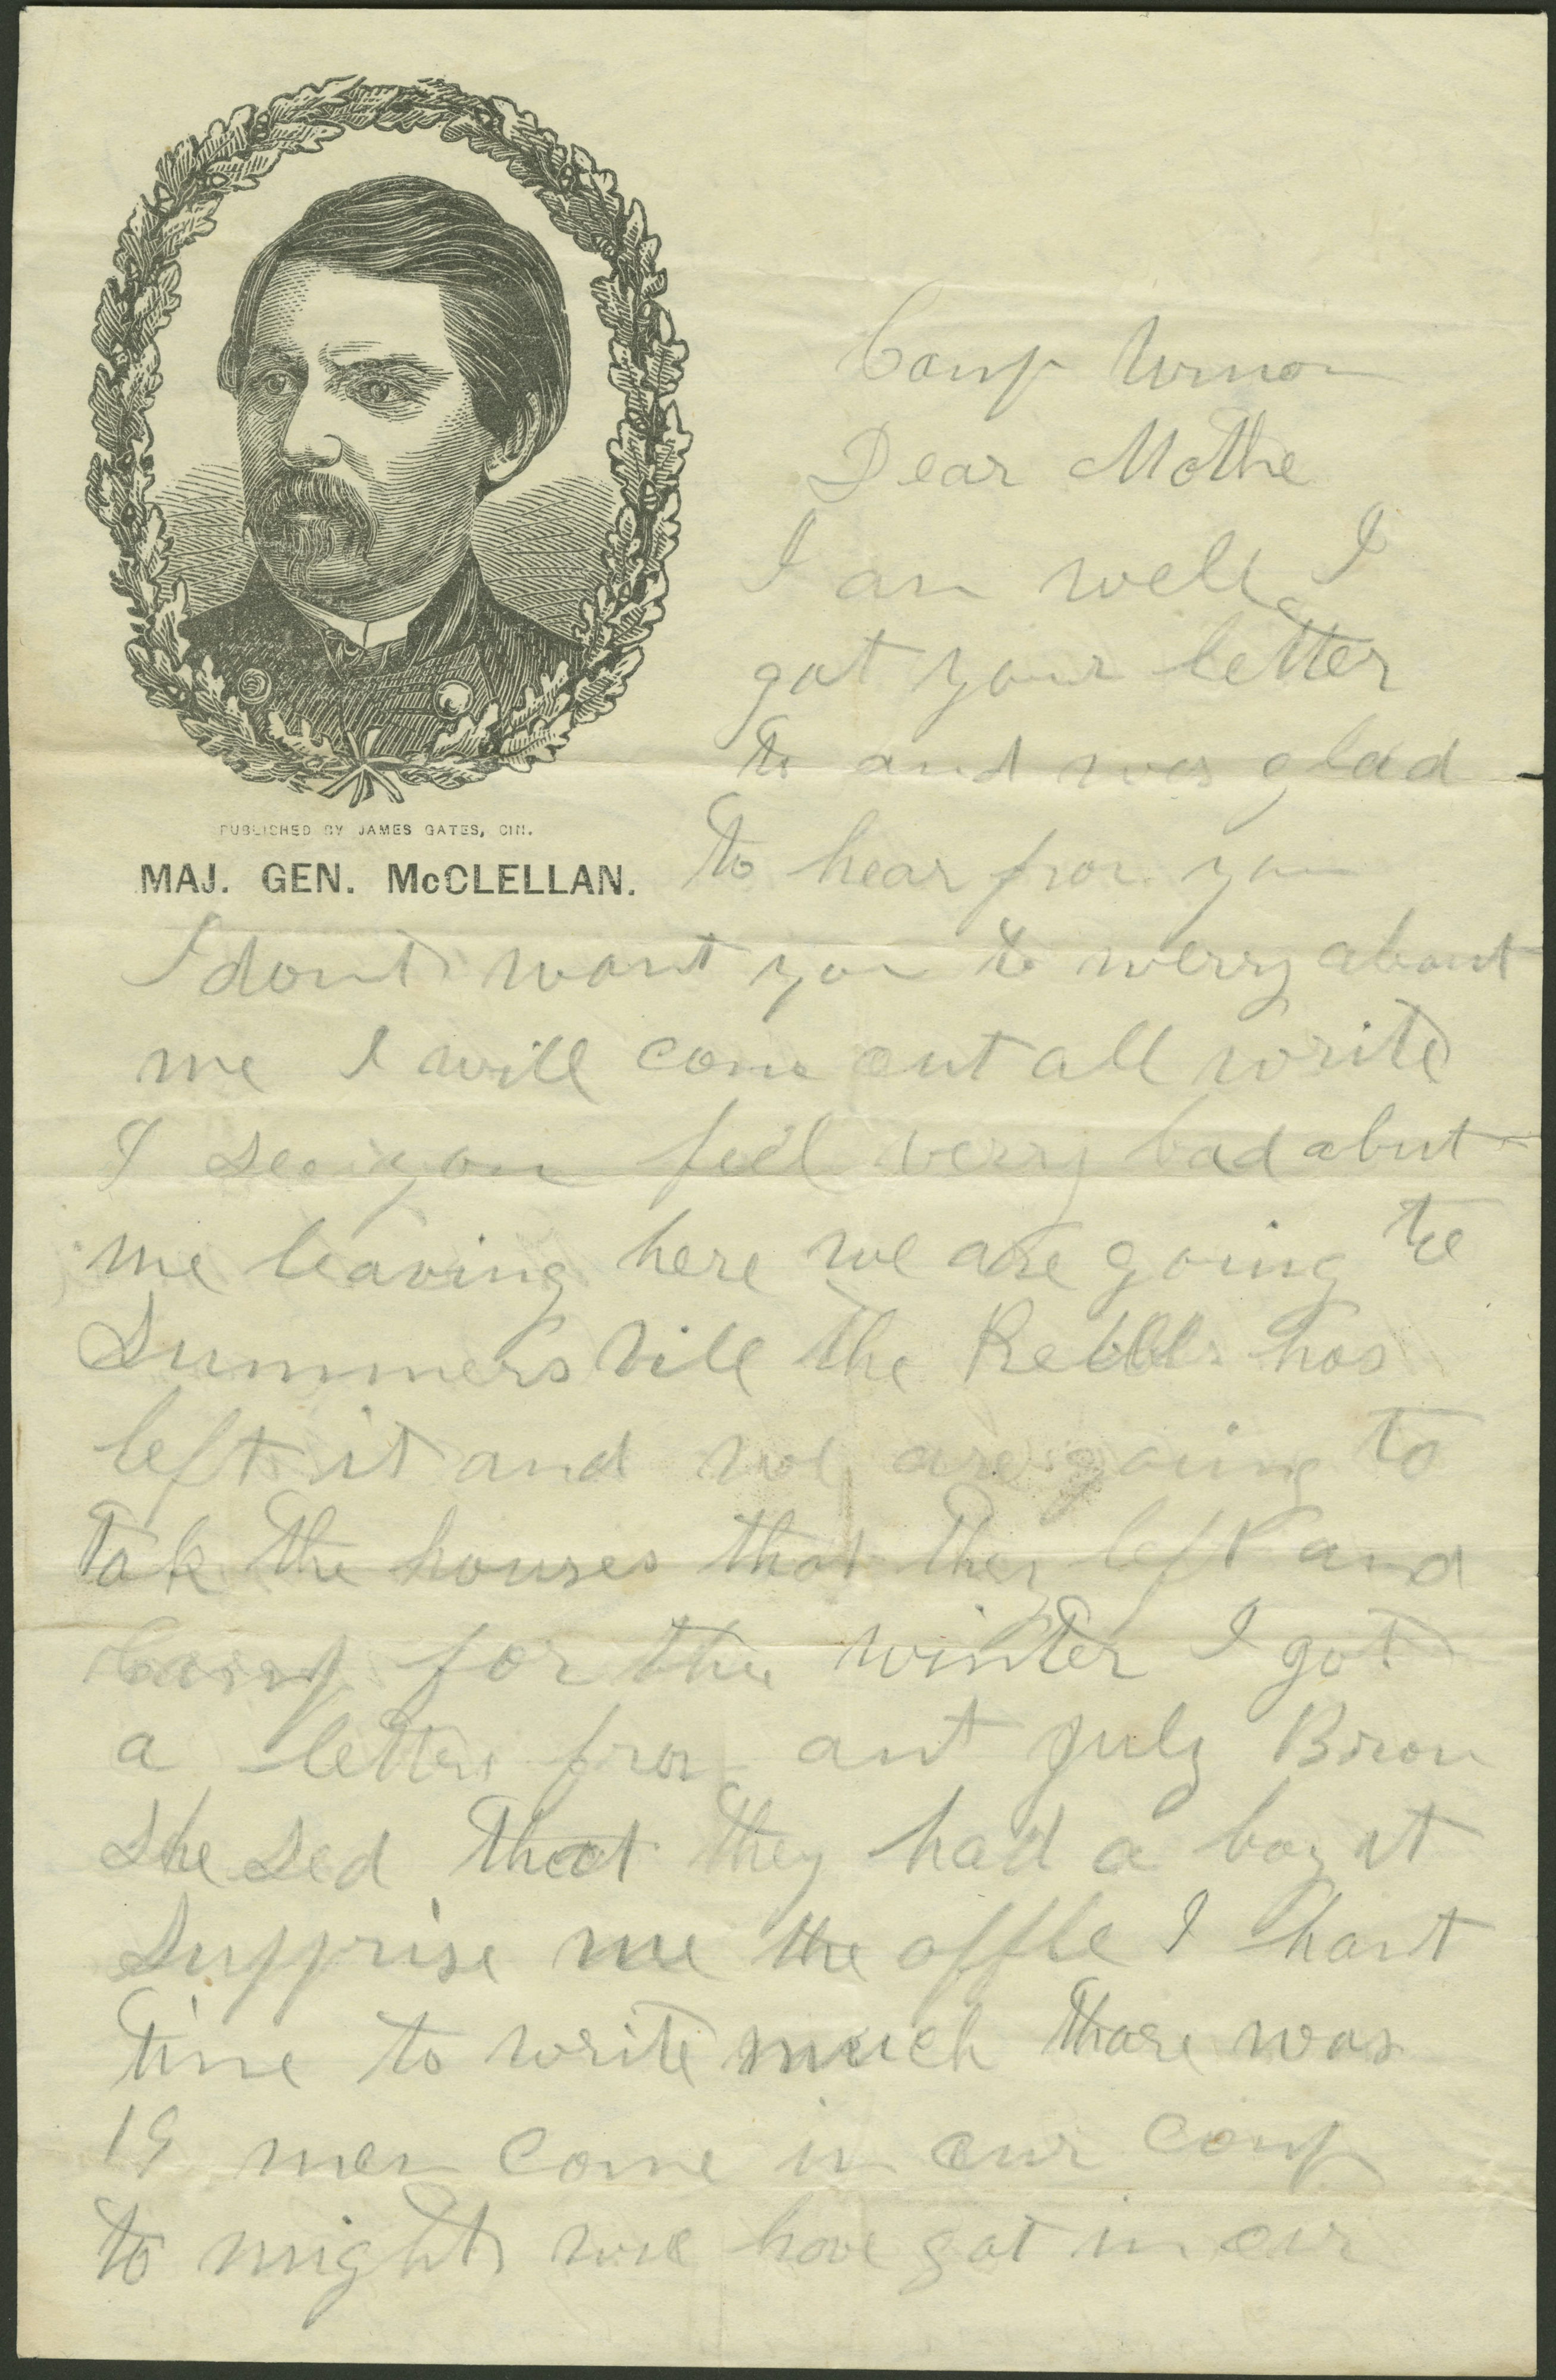 PUBLISHED BY JAMES GATES, CIN.
MAJ. GEN. McCLELLAN.
Camp Union
Dear Mothe
I am well I
got your letter
to and was glad
to hear from you
I dont want you to werry about
me I will come out all write
I see you feel verry bad abut
me leaving here we are going to
Summersvill the Rebbls has
left it and we are going to
take the houses that they left and
Camp for the winter I got
a letter from ant July Brown
she sed that they had a boy it
supprise me the offle I hant
time to write much thare was
19 men come in our comp
to night we have got in our